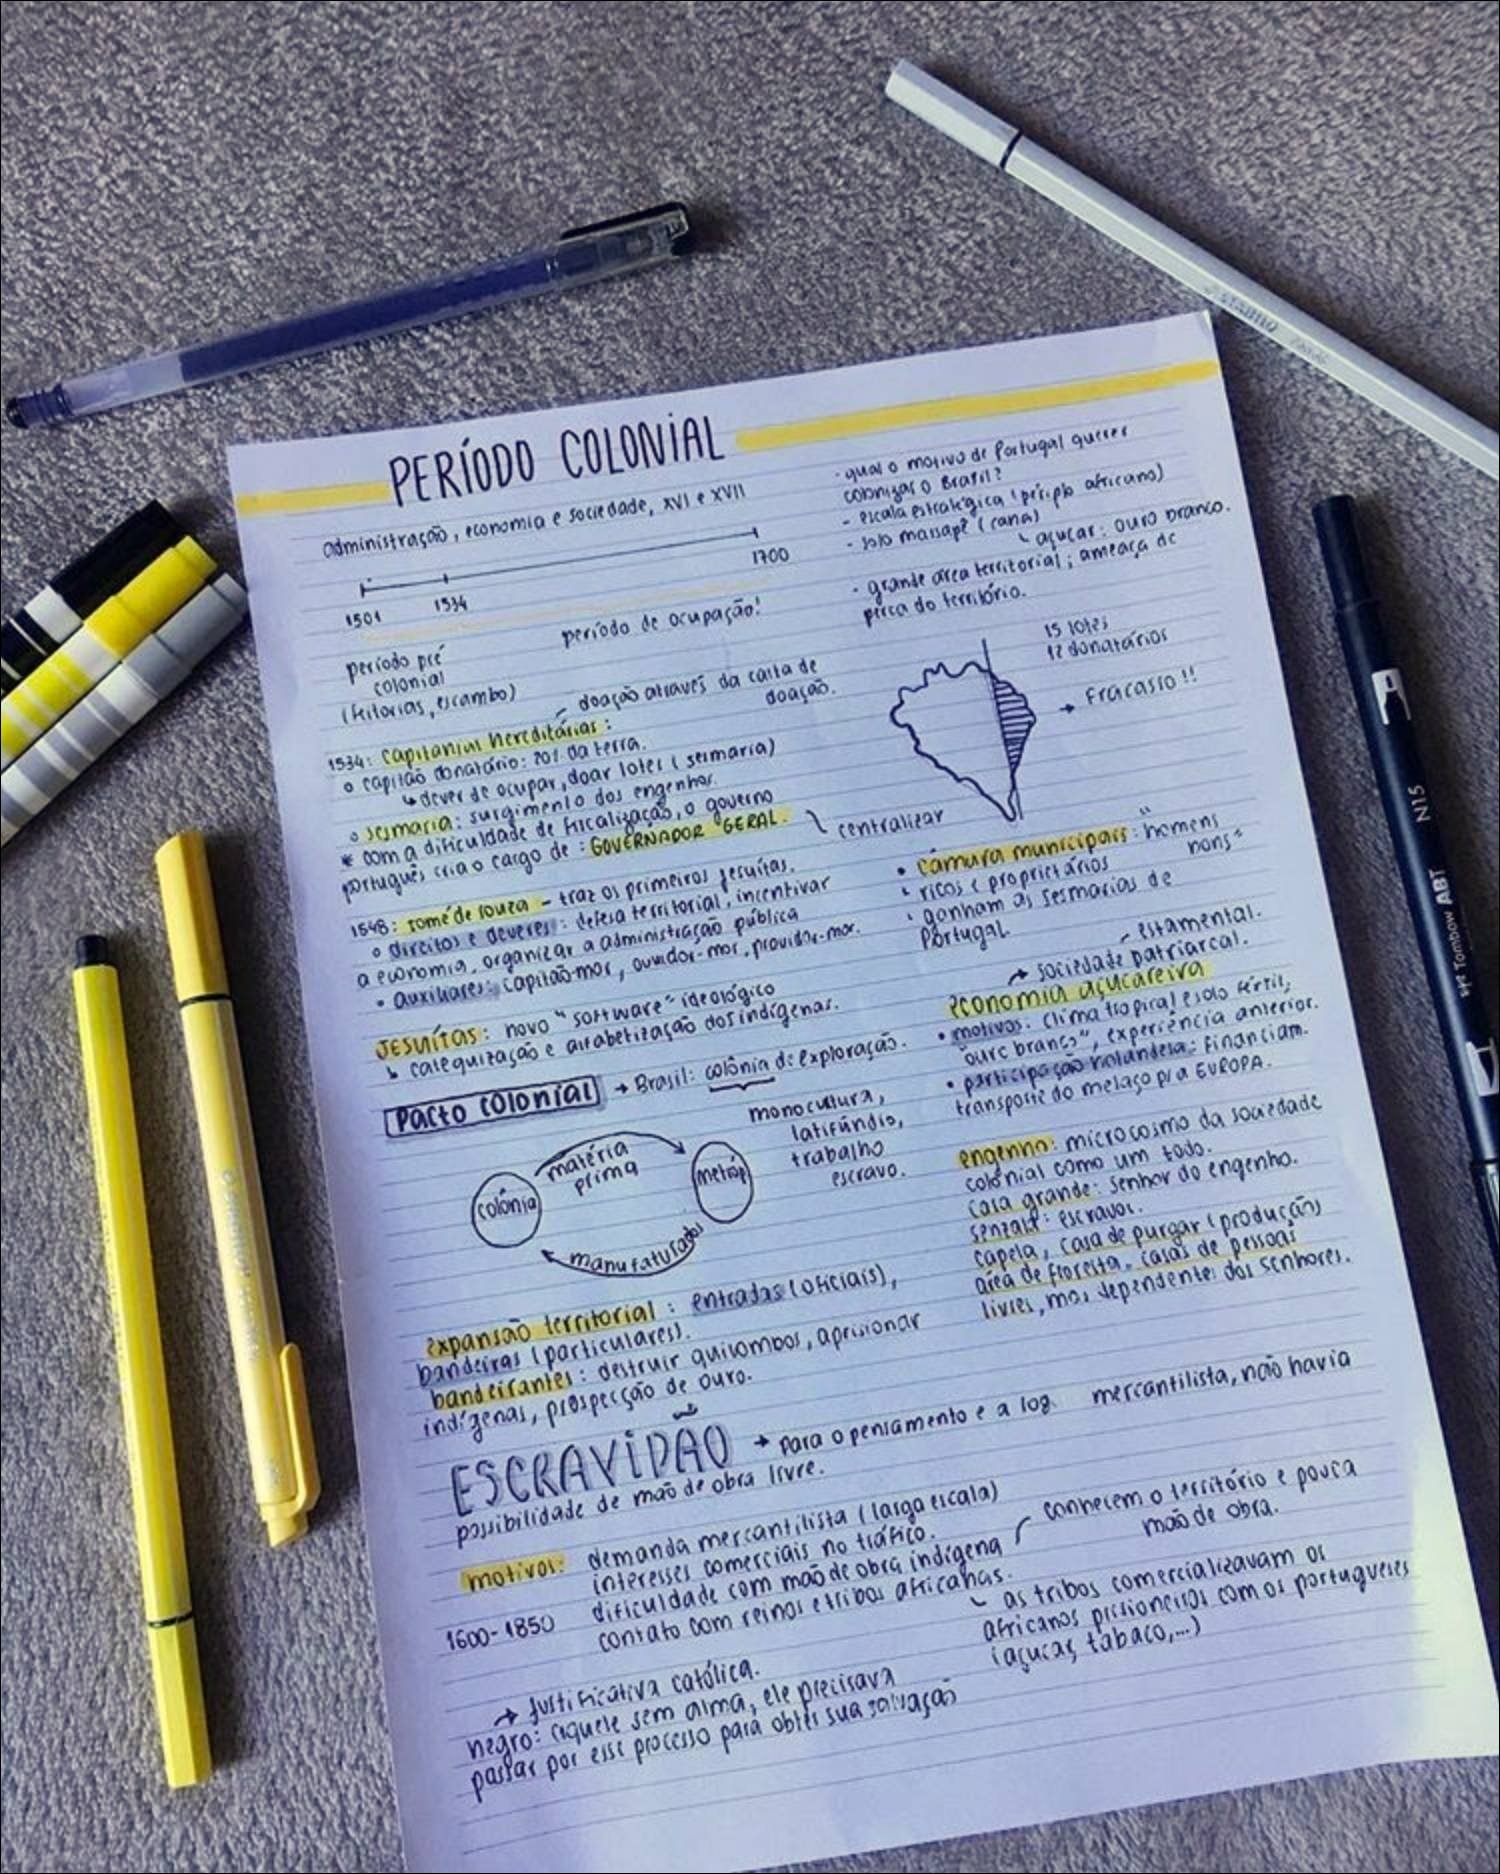 PERÍODO COLONIAL
administração, economia e sociedade, XVI e XVII
1501
1534
1700
período pré
colonial
(feitorias, escambo)
período de ocupação!
1534: capitanias hereditárias:
doação através da carta de
doação.
o capitão donatário: 20% da terra.
↳ dever de ocupar, doar lotes (sesmaria)
o sesmaria: surgimento dos engenhos.
* com a dificuldade de fiscalização, o governo
português cria o cargo de: GOVERNADOR GERAL.
centralizar
1548: tomé de souza - traz os primeiros jesuítas.
o direitos e deveres: defesa territorial, incentivar
a economia, organizar a administração pública
• auxiliares: capitão-mor, ouvidor-mor, providor-mor.
JESUÍTAS: novo "software" ideológico
↳ catequização e alfabetização dos indígenas.
pacto colonial → Brasil: colônia de exploração.
monocultura,
latifúndio,
trabalho
escravo.
colônia
matéria
prima
metróp
manufaturados
expansão territorial: entradas (oficiais),
bandeiras (particulares).
bandeirantes: destruir quilombos, aprisionar
indígenas, prospecção de ouro.
- qual o motivo de Portugal querer
colonizar o Brasil?
- escala estratégica (périplo africano)
- solo massapê (cana)
↳ açúcar: ouro branco.
- grande área territorial; ameaça de
perca do território.
15 lotes
12 donatários
→ Fracasso!!
• câmara municipais: "homens
nons"
• ricos e proprietários
• ganham as sesmarias de
Portugal
estamental.
→ sociedade patriarcal.
economia açucareira
• motivos: clima tropical e solo fértil,
"ouro branco", experiência anterior.
• participação holandesa: financiam.
transporte do melaço p/a EUROPA.
engenho: microcosmo da sociedade
colonial como um todo.
casa grande: senhor do engenho.
senzala: escravos.
capela, casa de purgar (produção)
área de floresta, casas de pessoas
livres, mas dependentes dos senhores.
ESCRAVIDÃO → para o pensamento e a log mercantilista, não havia
possibilidade de mão de obra livre.
motivos: demanda mercantilista (larga escala)
interesses comerciais no tráfico.
dificuldade com mão de obra indígena
contato com reinos e tribos africanas.
1600-1850
conhecem o território e pouca
mão de obra.
↳ as tribos comercializavam os
africanos prisioneiros com os portugueses
(açúcar, tabaco,...)
→ justificativa católica.
negro: aquele sem alma, ele precisava
passar por esse processo para obter sua salvação
STABILO
N15
ABT
Tombow